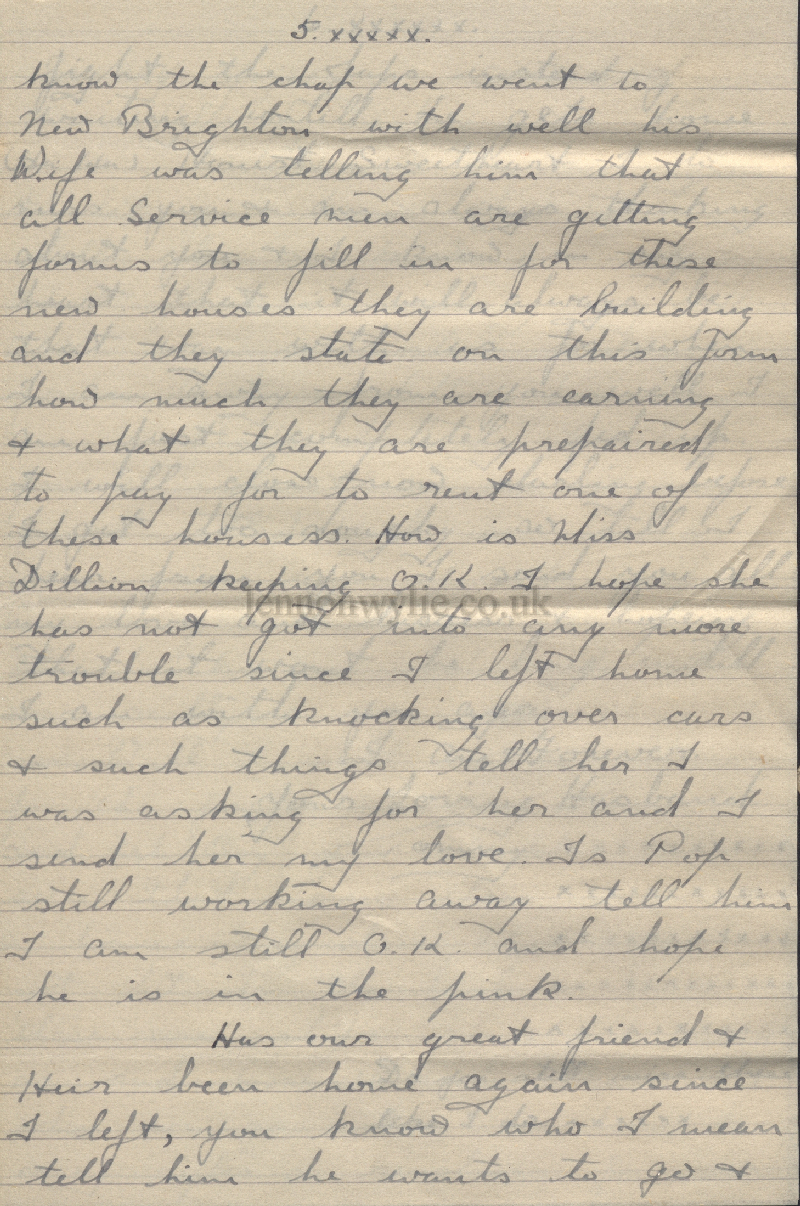 5. xxxxx.
know the chap we went to
New Brighton with well his
Wife was telling him that
all Service men are getting
forms to fill in for these
new houses they are building
and they state on this form
how much they are earning
& what they are prepaired
to pay for to rent one of
these housess. How is Miss
Dillion keeping O.K. I hope she
lennonwylie.co.uk
has not got into any more
trouble since I left home
such as knocking over cars
& such things tell her I
was asking for her and I
send her my love. Is Pop
still working away tell him
I am still O.K. and hope
he is in the pink.
Has our great friend &
Heir been home again since
I left, you know who I mean
tell him he wants to go &